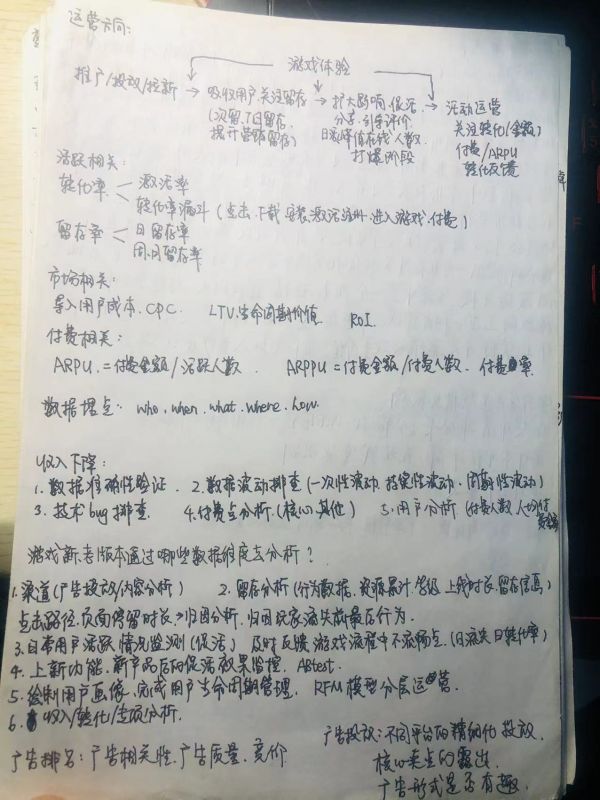 运营方向:
游戏体验
推广/投放/拉新 → 吸收用户关注留存 → 扩大影响、促活 → 活动运营
(次留、7日留存、 分享、引导评价 关注转化/金额)
提升营销留存) 日峰值在线人数、 付费/ARPU
打爆阶段 转化反馈
活跃相关:
转化率 激活率
转化率漏斗 (点击、下载、安装、激活、注册、进入游戏、付费)
留存率 日留存率
周、月留存率
市场相关:
导入用户成本、CPC LTV:生命周期价值 ROI
付费相关:
ARPU = 付费金额/活跃人数 ARPPU = 付费金额/付费人数、付费率
数据埋点: who、when、what、where、how
收入下降:
1、数据准确性验证、 2、数据波动排查(一次性波动、持续性波动、周期性波动)
3、技术bug排查 4、付费点分析(核心、其他) 5、用户分析(付费人数、人均付费金额)
游戏新老版本通过哪些数据维度去分析?
1、渠道(广告投放/内容分析) 2、留存分析(行为数据、资源累计、等级、上线时长、留存信息)
点击路径、页面停留时长→归因分析、归因玩家流失前最后行为.
3、日常用户活跃情况监测(促活) 及时反馈游戏流程中不流畅点、(日流失、日转化率)
4、上新功能、新产品后的促活效果监控、ABtest.
5、绘制用户画像、完成用户生命周期管理、RFM模型分层运营.
6、收入/转化/专项分析.
广告排名:广告相关性、广告质量、竞价
广告投放:不同平台的精细化投放
核心卖点的露出
广告形式是否有趣.